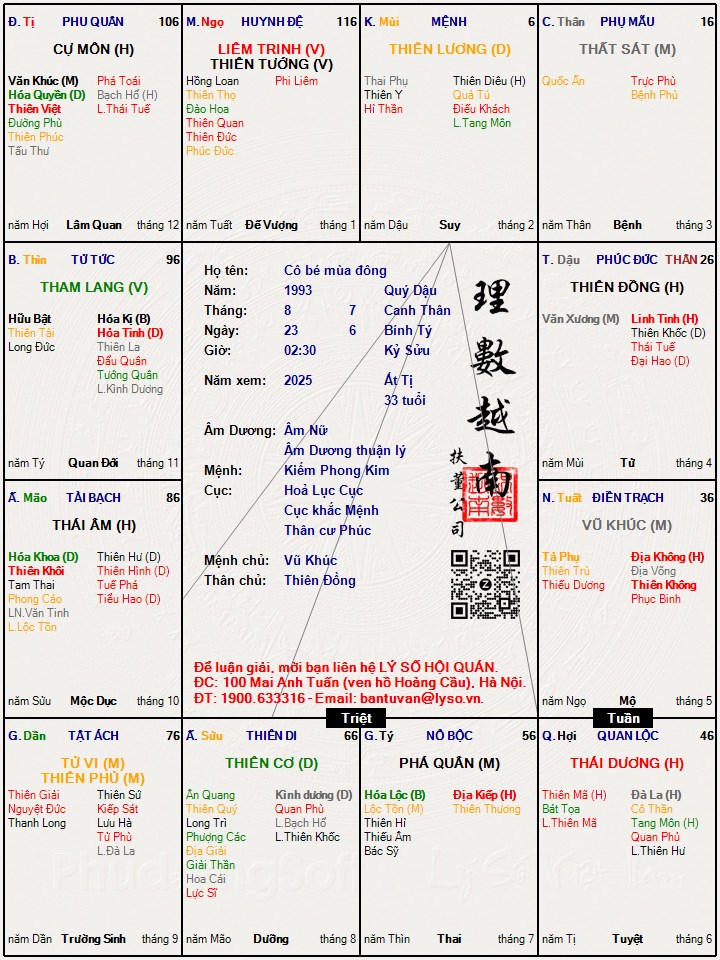 Đ. Tị PHU QUÂN 106
CỰ MÔN (H)
Văn Khúc (M) Phá Toái
Hóa Quyền (D) Bạch Hổ (H)
Thiên Việt L.Thái Tuế
Đường Phù
Thiên Phúc
Tấu Thư
năm Hợi Lâm Quan tháng 12
M. Ngọ HUYNH ĐỆ 116
LIÊM TRINH (V)
THIÊN TƯỚNG (V)
Hồng Loan Phi Liêm
Thiên Thọ
Đào Hoa
Thiên Quan
Thiên Đức
Phúc Đức
năm Tuất Đế Vượng tháng 1
K. Mùi MỆNH 6
THIÊN LƯƠNG (D)
Thai Phụ Thiên Diêu (H)
Thiên Y Quả Tú
Hỉ Thần Điếu Khách
L.Tang Môn
năm Dậu Suy tháng 2
C. Thân PHỤ MẪU 16
THẤT SÁT (M)
Quốc Ấn Trực Phù
Bệnh Phù
năm Thân Bệnh tháng 3
B. Thìn TỬ TỨC 96
THAM LANG (V)
Hữu Bật Hóa Kị (B)
Thiên Tài Hỏa Tinh (D)
Long Đức Thiên La
Đẩu Quân
Tướng Quân
L.Kình Dương
năm Tý Quan Đới tháng 11
Họ tên: Cô bé mùa đông
Năm: 1993 Quý Dậu
Tháng: 8 7 Canh Thân
Ngày: 23 6 Bính Tý
Giờ: 02:30 Kỷ Sửu
Năm xem: 2025 Ất Tị
33 tuổi
Âm Dương: Âm Nữ
Âm Dương thuận lý
Mệnh: Kiếm Phong Kim
Cục: Hoả Lục Cục
Cục khắc Mệnh
Thân cư Phúc
Mệnh chủ: Vũ Khúc
Thân chủ: Thiên Đồng
理數越南
扶董公司
Để luận giải, mời bạn liên hệ LÝ SỐ HỘI QUÁN.
ĐC: 100 Mai Anh Tuấn (ven hồ Hoàng Cầu), Hà Nội.
ĐT: 1900.633316 - Email: bantuvan@lyso.vn.
T. Dậu PHÚC ĐỨC THÂN 26
THIÊN ĐỒNG (H)
Văn Xương (M) Linh Tinh (H)
Thiên Khốc (D)
Thái Tuế
Đại Hao (D)
năm Mùi Tử tháng 4
Ấ. Mão TÀI BẠCH 86
THÁI ÂM (H)
Hóa Khoa (D) Thiên Hư (D)
Thiên Khôi Thiên Hình (D)
Tam Thai Tuế Phá
Phong Cáo Tiểu Hao (D)
LN.Văn Tinh
L.Lộc Tồn
năm Sửu Mộc Dục tháng 10
N. Tuất ĐIỀN TRẠCH 36
VŨ KHÚC (M)
Tả Phụ Địa Không (H)
Thiên Trù Địa Võng
Thiếu Dương Thiên Không
Phục Binh
năm Ngọ Mộ tháng 5
Triệt
Tuần
G. Dần TẬT ÁCH 76
TỬ VI (M)
THIÊN PHỦ (M)
Thiên Giải Thiên Sứ
Nguyệt Đức Kiếp Sát
Thanh Long Lưu Hà
Tử Phù
L.Đà La
năm Dần Trường Sinh tháng 9
Ấ. Sửu THIÊN DI 66
THIÊN CƠ (D)
Ân Quang Kình dương (D)
Thiên Quý Quan Phù
Long Trì L.Bạch Hổ
Phượng Các L.Thiên Khốc
Địa Giải
Giải Thần
Hoa Cái
Lực Sĩ
năm Mão Dưỡng tháng 8
G. Tý NÔ BỘC 56
PHÁ QUÂN (M)
Hóa Lộc (B) Địa Kiếp (H)
Lộc Tồn (M) Thiên Thương
Thiên Hỉ
Thiếu Âm
Bác Sỹ
năm Thìn Thai tháng 7
Q. Hợi QUAN LỘC 46
THÁI DƯƠNG (H)
Thiên Mã (H) Đà La (H)
Bát Tọa Cô Thần
L.Thiên Mã Tang Môn (H)
Quan Phủ
L.Thiên Hư
năm Tị Tuyệt tháng 6